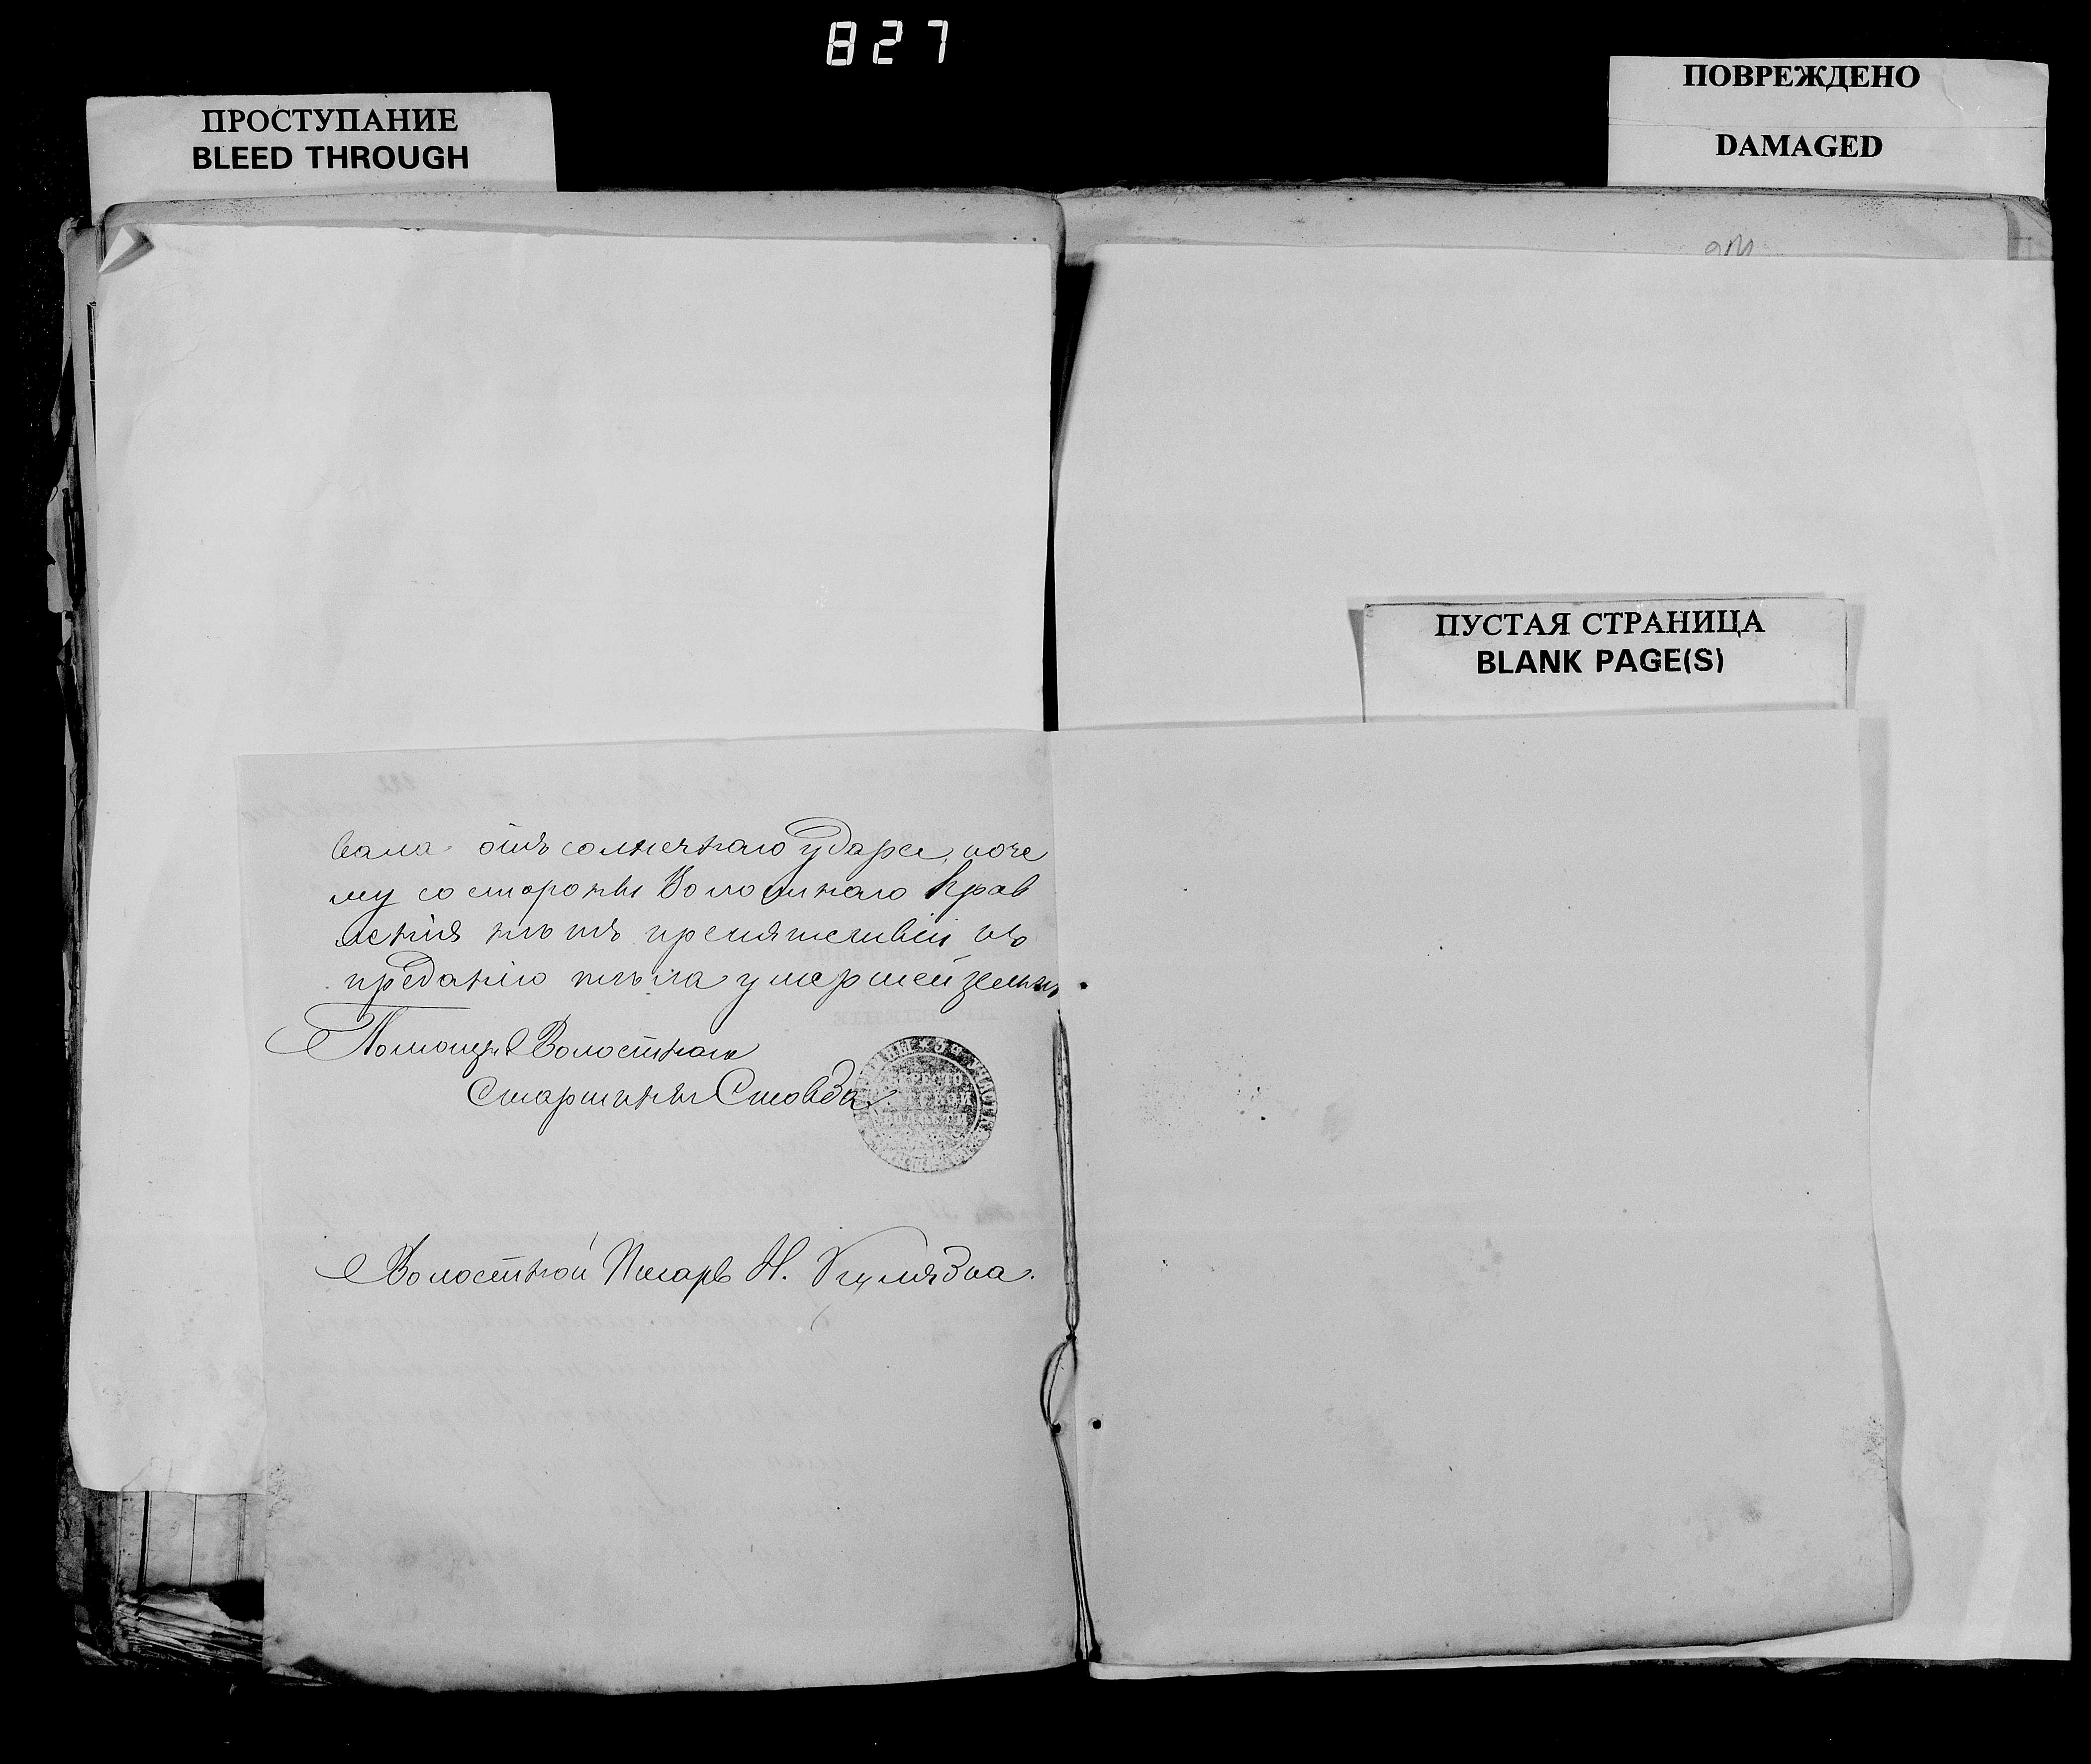 827
ПРОСТУПАНИЕ
BLEED THROUGH
ПОВРЕЖДЕНО
DAMAGED
ПУСТАЯ СТРАНИЦА
BLANK PAGE(S)
вала отъ солнечнаго удара, поче
му со стороны Волостнаго Прав
ленія нѣтъ препятствій къ
преданію тѣла умершей землѣ.
Помощн. Волостнаго
Старшины
Волостной Писарь Н.